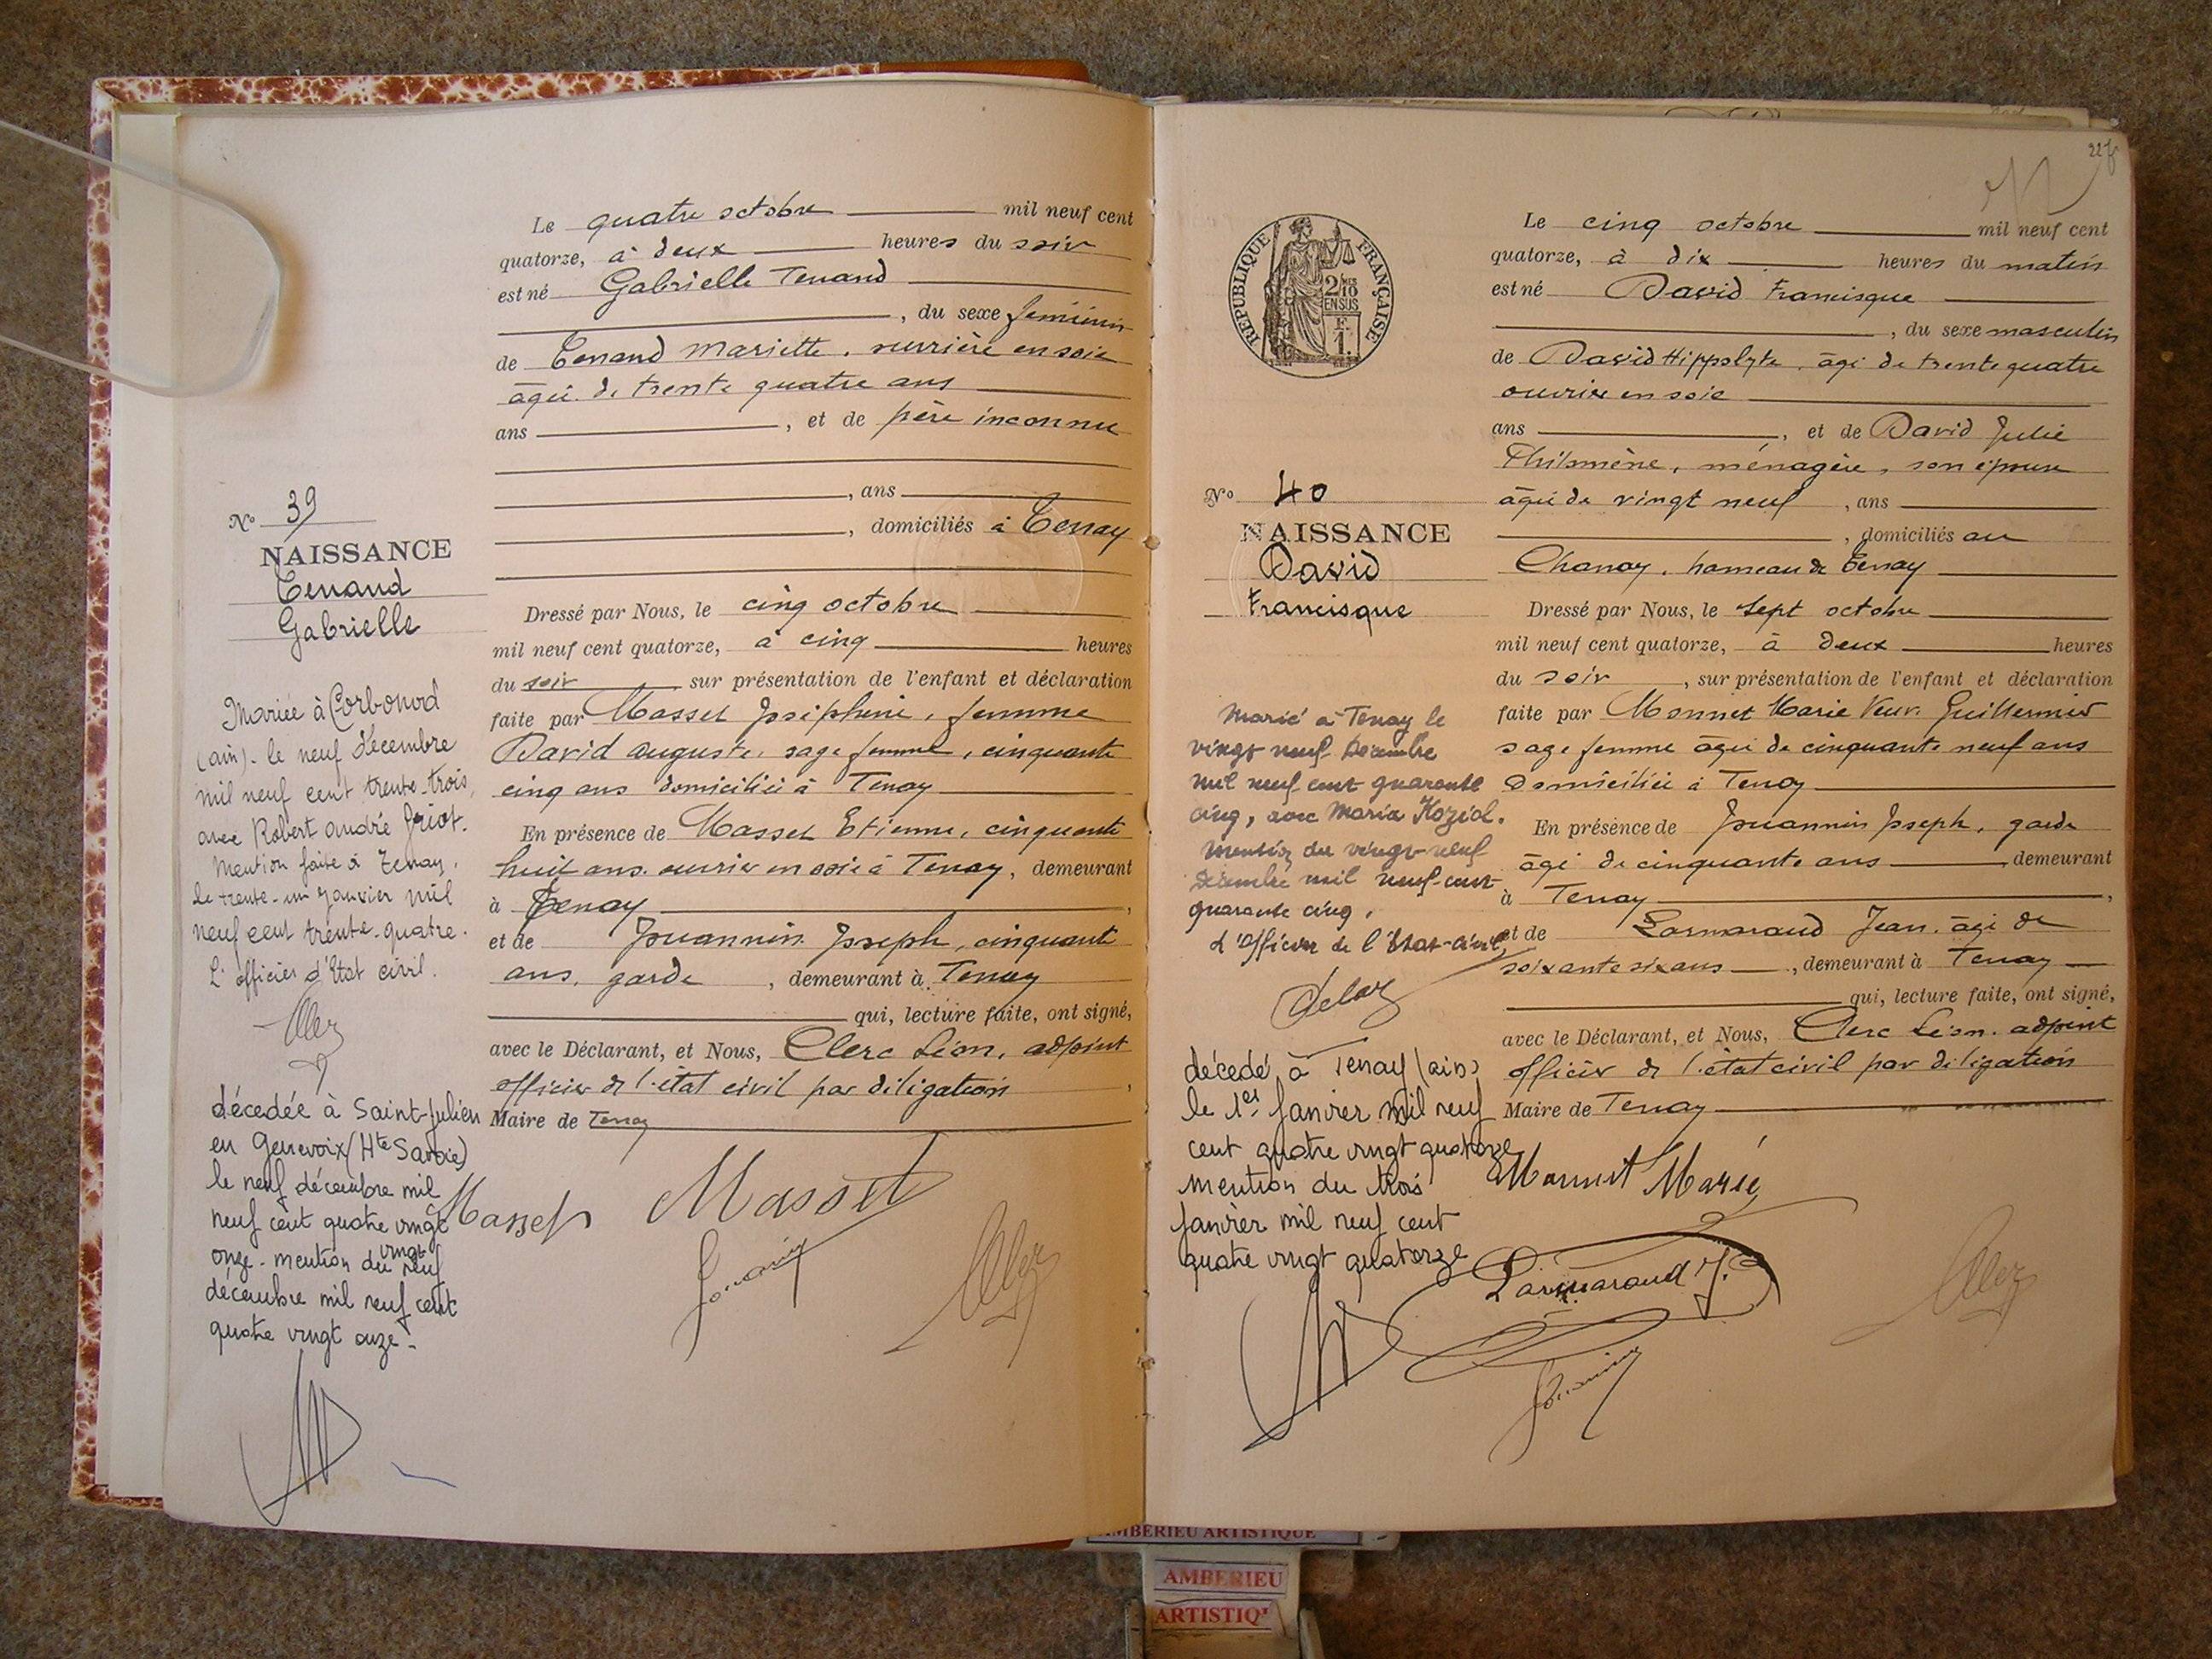 Le quatre octobre mil neuf cent
quatorze, à deux heures du soir
est né Gabrielle Tenand
, du sexe feminin
de Tenand Mariette, ouvrière en soie
âgée de trente quatre ans
ans , et de père inconnu
, ans
, domiciliés à Tenay
Dressé par Nous, le cinq octobre
mil neuf cent quatorze, à cinq heures
du soir sur présentation de l'enfant et déclaration
faite par Masset Joséphine, femme
David Auguste, sage femme, cinquante
cinq ans domiciliée à Tenay
En présence de Masset Etienne, cinquante
huit ans, ouvrier en soie à Tenay, demeurant
à Tenay ,
et de Jouannin Joseph, cinquante
ans, garde , demeurant à Tenay
qui, lecture faite, ont signé,
avec le Déclarant, et Nous, Clerc Léon, adjoint
officier de l'état civil par déligation ,
Maire de Tenay
Masset Masset
Jouannin
Clerc
No 39
NAISSANCE
Tenand
Gabrielle
Mariée à Corbonod
(ain) - le neuf décembre
mil neuf cent trente-trois,
avec Robert André Griot.
Mention faite à Tenay,
le trente-un janvier mil
neuf cent trente-quatre.
L'officier d'Etat civil.
décedée à Saint-Julien
en Genevoix (Hte Savoie)
le neuf décembre mil
neuf cent quatre vingt
onze - mention du vingt neuf
décembre mil neuf cent
quatre vingt onze -
REPUBLIQUE FRANÇAISE
2/10
EN SUS
1 F.
Le cinq octobre mil neuf cent
quatorze, à dix heures du matin
est né David Francisque
, du sexe masculin
de David Hippolyte, âgé de trente quatre
ouvrier en soie
ans , et de David Julie
Philomène, ménagère, son épouse
âgée de vingt neuf , ans
, domiciliés au
Chanay, hameau de Tenay
Dressé par Nous, le sept octobre
mil neuf cent quatorze, à deux heures
du soir , sur présentation de l'enfant et déclaration
faite par Monnet Marie Veuve Guillermier
sage femme âgée de cinquante neuf ans
domiciliée à Tenay
En présence de Jouannin Joseph, garde
âgé de cinquante ans demeurant
à Tenay ,
et de Larmaraud Jean, âgé de
soixante six ans , demeurant à Tenay
qui, lecture faite, ont signé,
avec le Déclarant, et Nous, Clerc Léon, adjoint
officier de l'état civil par déligation
Maire de Tenay
Monnet Marie
Larmaraud J.
Jouannin
Clerc
No 40
NAISSANCE
David
Francisque
Marié à Tenay le
vingt neuf Décembre
mil neuf cent quarante
cinq, avec Maria Koziol.
Mention du vingt-neuf
Décembre mil neuf-cent-
quarante cinq,
l'Officier de l'Etat-Civil,
décedé à Tenay (ain)
le 1er Janvier mil neuf
cent quatre vingt quatorze
mention du trois
Janvier mil neuf cent
quatre vingt quatorze
AMBERIEU ARTISTIQUE
AMBERIEU
ARTISTIQ